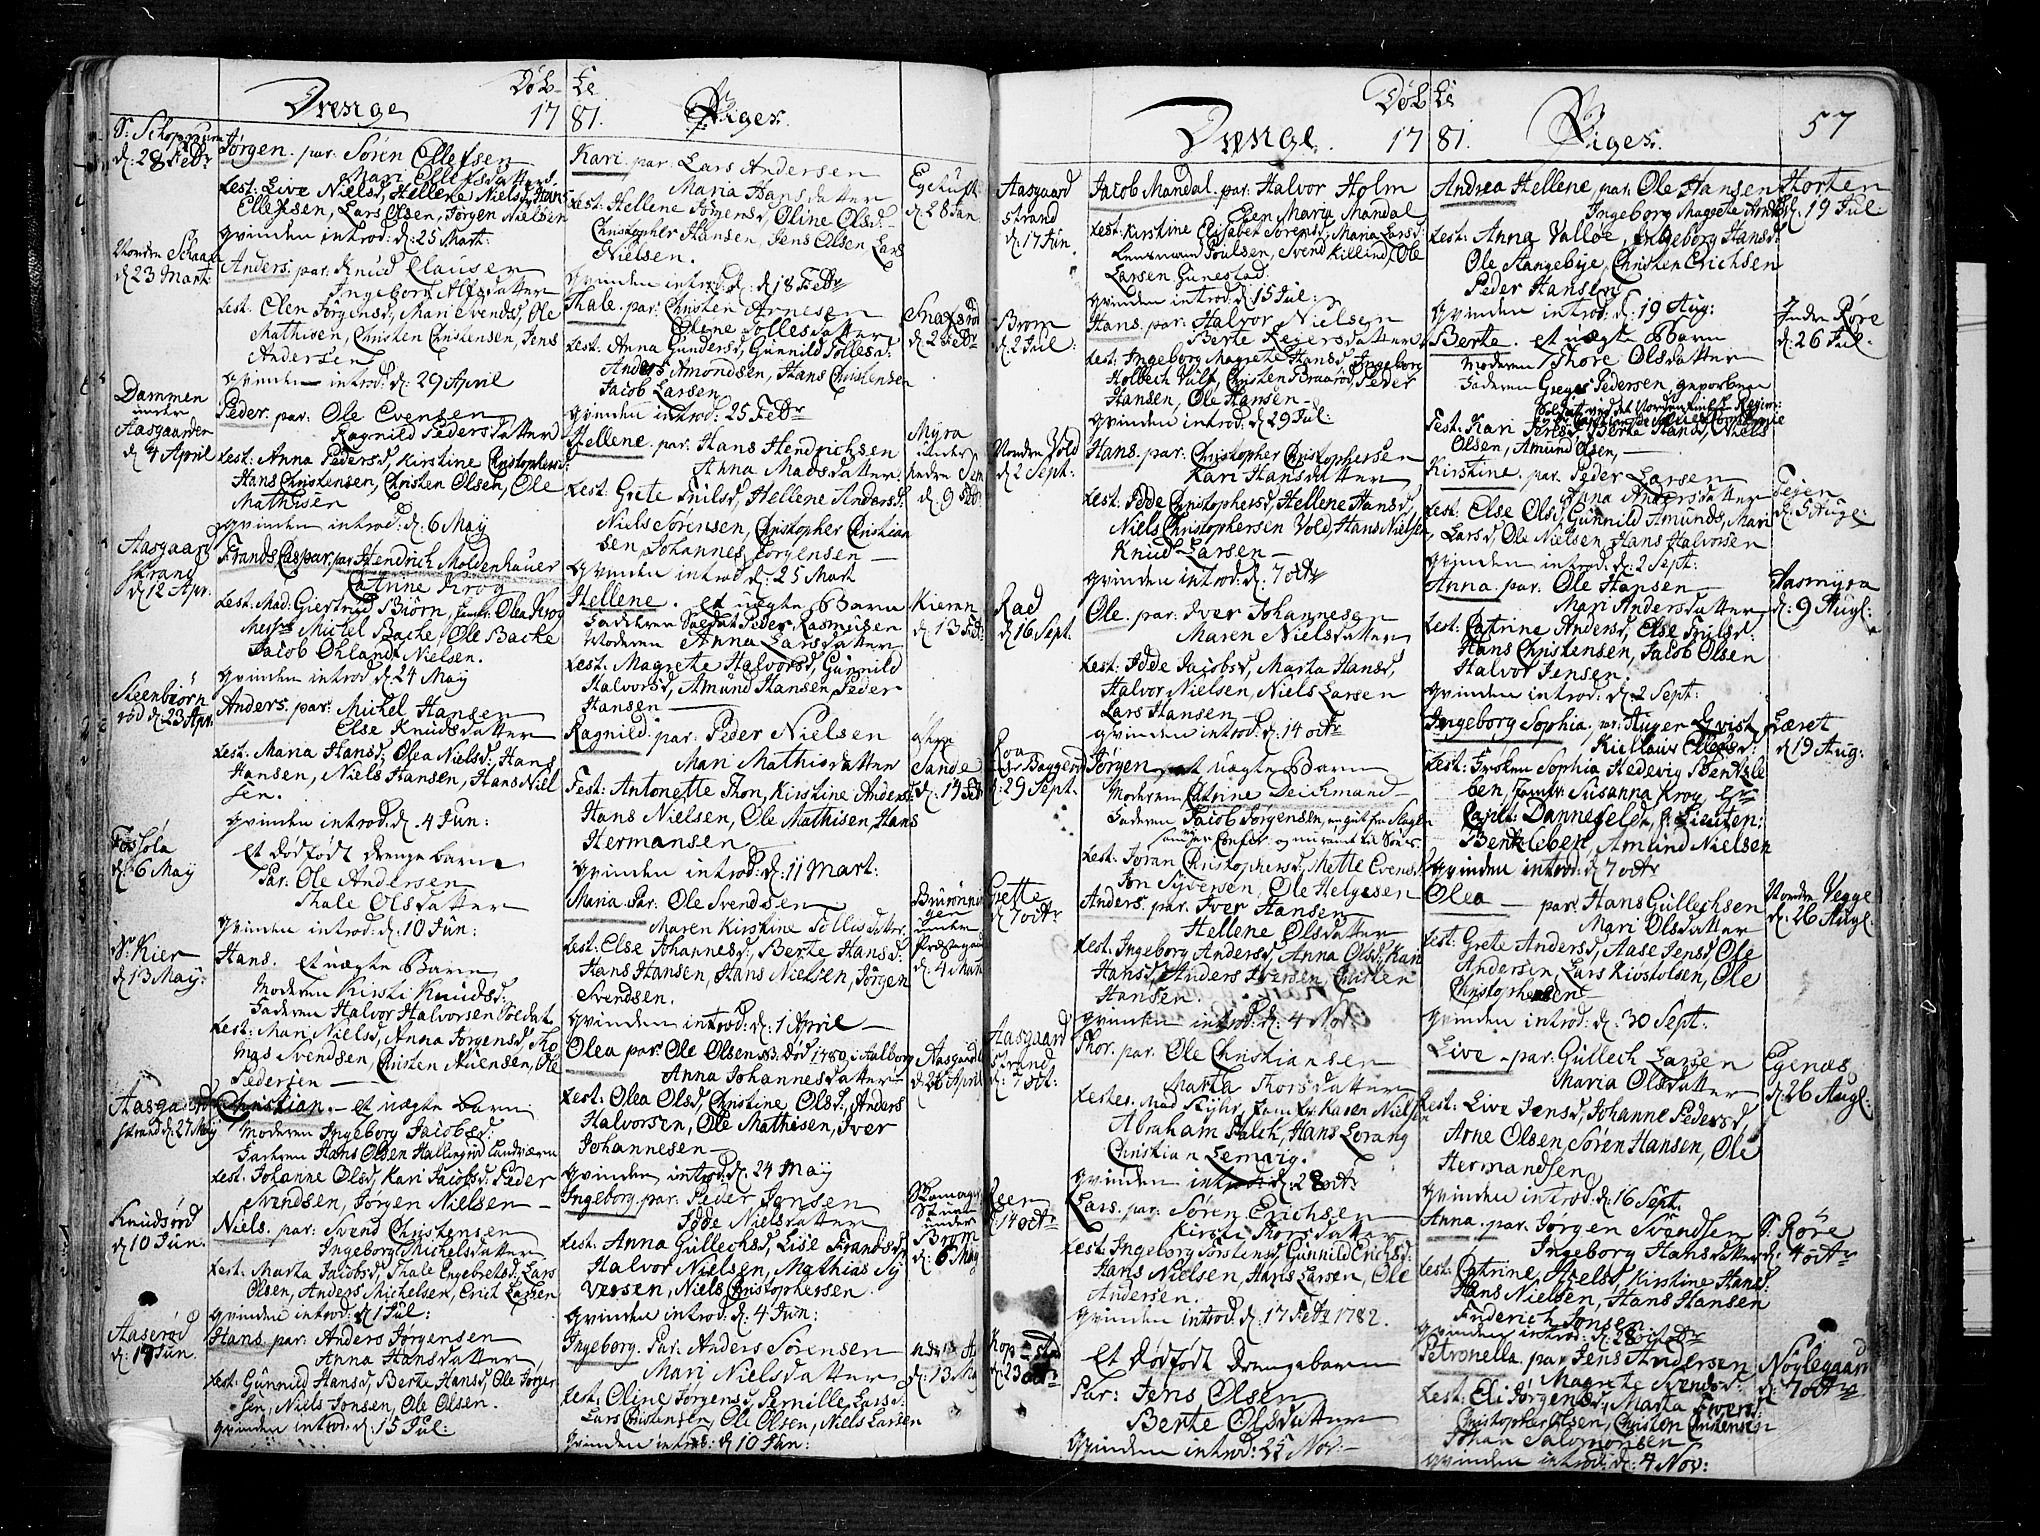 Døb-
Drenge 17
Sr. Schopsrum
d: 28 Febr
Jørgen. par. Søren Ellefsen
Mari Ellefsdatter
Test: Live Nielsd, Hellene Nielsd, Hans
Ellefsen, Lars Olsen, Jørgen Nielsen
Qvinden introd: d: 25 Mart:
Nordre Schaan
d: 23 Mart:
Anders. par. Knud Clausen
Ingebor Alfsdatter
Test: Elen Jørgensd, Mari Svends, Ole
Mathisen, Christen Christensen, Jens
Andersen
Qvinden introd: d: 29 April
Dammen
under
Aasgaarden
d: 4 April
Peder. par: Ole Evensen
Ragnild Pedersdatter
Test: Anna Pedersd, Kirstine Christophersd:
Hans Christensen, Christen Olsen, Ole
Mathisen
Qvinden introd: d: 6 May
Aasgaard
strand
d: 12 Apr:
Frands Caspar. par Hendrich Moldenhauer
Catrine Krog
Test: Mad: Giertrud Biørn, Jomfr: Olea Krog
Messrs Michel Backe, Ole Backe
Jacob Ohlandt Nielsen.
Qvinden introd d. 24 May
Steenbiørn
rød d. 23 Apr:
Anders. par: Michel Hansen
Else Knudsdatter
Test: Maria Hansd, Olea Nielsd, Hans
Hansen, Niels Hansen, Hans Niel
sen.
Qvinden introd: d. 4 Jun:
d: 6 May
Et dødfødt drenge barn
Par: Ole Andersen
Thale Olsdatter
Qvinden introd: d. 10 Jun:
Sr. Kier
d: 13 May:
Hans. et uægte Barn
Moderen Kirsti Knudsd:
Faderen Halvor Halvorsen Soldat
Test: Mari Nielsd, Anna Jørgensd, Tho
mas Svendsen, Christen Auensen, Ole
Pedersen
Aasgaard
strand d. 27 May
Christian. - et uægte barn
Moderen Ingeborg Jacobsd:
Faderen Hans Olsen Hallingrød Landværn
Test: Johanne Olsd, Kari Jacobsd: Peder
Svendsen, Jørgen Nielsen
Knudsrød
d: 10 Jun.
Niels. par: Svend Christensen
Ingeborg Michelsdatter
Test: Marta Jacobsd, Thale Engebretsd, Lars
Olsen, Anders Michelsen, Erich Larsen
Qvinden introd: d: 1 Jul:
Aaserød
d: 17 Jun.
Hans. par: Anders Jørgensen
Anna Hansdatter
Test: Gunnild Hansd, Berte Hansd, Ole Jørgen
sen, Niels Jonsen, Ole Olsen.
Qvinden introd: d: 15 Jul:
te
81. Piger.
Kari. par: Lars Andersen
Maria Hansdatter
Test: Hellene Jørgensd, Oline Olsd:
Christopher Hansen, Jens Olsen, Lars
Nielsen.
Qvinden introd: d: 18 Febr
d. 28 Jan
Thale. par: Christen Arnesen
Elene Tollesdatter
Test: Anna Gundersd, Gunnild Tollesd:
Anders Amondsen, Hans Christensen
Jacob Larsen
Qvinden introd: 25 Febr
Snaxrød
d: 2 Febr
Hellene. par: Hans Hendrichsen
Anna Madsdatter
Test: Grete Trulsd, Hellene Andersd:
Niels Sørensen, Christopher Christian
sen, Johannes Jørgensen
Qvinden introd: d: 25 Mart
Myra
under
d: 9 Febr
Hellene. et uægte Barn
Faderen Soldat Peder Rasmussen
Moderen Anna Larsdatter
Test: Magrete Halvorsd, Gunnild
Halvorsd, Amund Hansen, Peder
Hansen
Kieran
d: 13 Febr
Ragnild. par: Peder Nielsen
Mari Mathisdatter
Test: Antonette Thon, Kirstine Andersd:
Hans Nielsen, Ole Mathisen, Hans
Hermansen
Qvinden introd: d: 11 Mart:
Sande
Maria. Par: Ole Svendsen
Maren Kirstine Tollesdatter.
Test: Else Johannesd, Berte Hansd:
Hans Hansen, Hans Nielsen, Jørgen
Svendsen.
Qvinden introd: d: 1 April
under
Præstegaar
d: 4 Mart
Olea par: Ole Olsen død 1780, i Aalborg
Anna Johannesdatter
Test: Olea Olsd, Christine Olsd, Anders
Halvorsen, Ole Mathisen, Iver
Johannesen
Qvinden introd: d: 24 May
d: 26 April
Ingeborg. par: Peder Jonsen
Idde Nielsdatter
Test: Anna Gullechsd, Lise Frandsd,
Halvor Nielsen, Mathias Sy
versen, Niels Christophersen
Qvinden introd: d: 4 Jun:
under
Brom
d: 6 May
Ingeborg. Par: Anders Sørensen
Mari Nielsdatter
Test: Oline Jørgensd, Pernille Larsd:
Lars Christensen, Ole Olsen, Niels Larsen
Qvinden introd: d: 10 Jun:
d: 13 May
Døb
Drenge. 17
Aasgaard
strand
d: 17 Jun.
Jacob Mandal. par: Halvor Holm
Elen Maria Mandal
Test: Kirstine Elisabet Sørensd, Maria Larsd:
Lensmand Poulsen, Svend Killind, Ole
Larsen Gunestad.
Qvinden introd: d: 15 Jul:
Brom
d. 2 Jul:
Hans. par: Halvor Nielsen
Berte Reiersdatter
Test: Ingeborg Magrete Hansd, Ingeborg
Holbech Vulf, Christen Braarød, Peder
Hansen, Ole Hansen
Qvinden introd: d: 29 Jul:
Nordre Vold
d: 2 Sept:
Hans. par: Christopher Christophersen
Kari Hansdatter
Test: Idde Christophersd, Hellene Hansd,
Niels Christophersen Vold, Hans Nielsen
Knud Larsen
Qvinden introd: d. 7 octr
Rad
d: 16 Sept.
Ole. par: Iver Johannesen
Maren Nielsdatter
Test: Idde Jacobsd, Marta Hansd,
Halvor Nielsen, Niels Larsen
Lars Hansen
Qvinden introd: d. 14 octr
Roa
d: 29 Sept.
Jørgen, et uægte Barn
Moderen Catrine Deichmand
Faderen Jacob Jørgensen,
Test: Joran Christophersd, Mette Evensd:
Jon Syversen, Ole Helgesen
Grette
d: 7 octr
Anders. par: Iver Hansen
Hellene Olsdatter
Test: Ingeborg Andersd, Anna Olsd, Kari
Hansd, Anders Iversen, Christen
Hansen.
Qvinden introd: d: 4 Nov:
Aasgaard
strand
d: 7 oct:
Thor. par: Ole Christiansen
Marta Thorsdatter
Testes. Mad Flyhr, Jomfr: Karen Nielsen
Abraham Falch, Hans Lorang
Christian Lemvig.
Qvinden introd: d: 28 octr
d: 14 octr
Lars. par: Søren Erichsen
Kirsti Thorsdatter
Test: Ingeborg Torstensd, Gunnild Erichsd:
Hans Nielsen, Hans Larsen, Ole
Andersen.
Qvinden introd: d: 17 Febr 1782.
d: 23 octr
Et dødfødt Drengebarn
Par: Jens Olsen
Berte Olsdatter
Qvinden introd: 25 Nov:
te
81. Piger.
57
Andrea Hellene, par: Ole Hansen
Ingeborg Magrete
Test: Anna Valløe, Ingeborg Hansd:
Ole Stangebye, Christen Erichsen
Peder Hansen
Qvinden introd: d: 19 Aug:
Horten
d. 19 Jul:
Berte. et uægte Barn
Moderen Thore Olsdatter
Faderen Greger Pedersen, geworben
Test: Kari Jensd, Berte Hansd, Niels
Olsen, Amund Olsen,
Indre Røre
d: 26 Jul.
Kirstine. par. Peder Larsen
Anna Andersdatter
Test: Else Olsd, Gunnild Amunds, Mari
Larsd, Ole Nielsen, Hans Halvorsen
Qvinden introd: d: 2 Sept:
Feien
d: 5 Aug:
Anna. par: Ole Hansen
Mari Andersdatter
Test: Catrine Andersd, Else Trulsd:
Hans Christensen, Jacob Olsen
Halvor Jensen
Qvinden introd: d: 2 Sept:
Aasmyra
d: 9 Augl:
Ingeborg Sophia, par: Auger Qvist
Test: Frøken Sophia Hedevig Bentzle
ben, Jomfr: Susanna Krog,
Capit: Dannefeldt, Lieuten:
Bentzleben, Amund Nielsen
Qvinden introd: d: 7 octr
Læret
d: 19 Aug:
Olea par: Hans Gullechsen
Mari Olsdatter
Test: Grete Andersd, Aase Jensd, Ole
Andersen, Lars Kiostolsen, Ole
Christophersen
Qvinden introd: d: 30 Sept.
Nordre Vegge
d: 26 Augl
Live - par: Gullech Larsen
Maria Olsdatter
Test: Live Jensd, Johanne Pedersd,
Arne Olsen, Søren Hansen, Ole
Hermandsen
Qvinden introd: d: 16 Sept.
Egenæs
d: 26 Augl:
Anna. par: Jørgen Svendsen
Ingeborg Hansdatter
Test: Catrine Nielsd, Kirstine Hansd:
Hans Nielsen, Hans Hansen
Friderich Jonsen.
Qvinden introd: d: 28 octr
S. Røre
d: 4 octr
Petronella. par: Jens Andersen
Magrete Svendsd:
Test: Eli Jørgensd, Marta Iversd:
Christopher Olsen, Christen Christensen
Johan Salomonsen
Qvinden introd: d: 4 Nov:
Nøylegaard
d: 7 octr